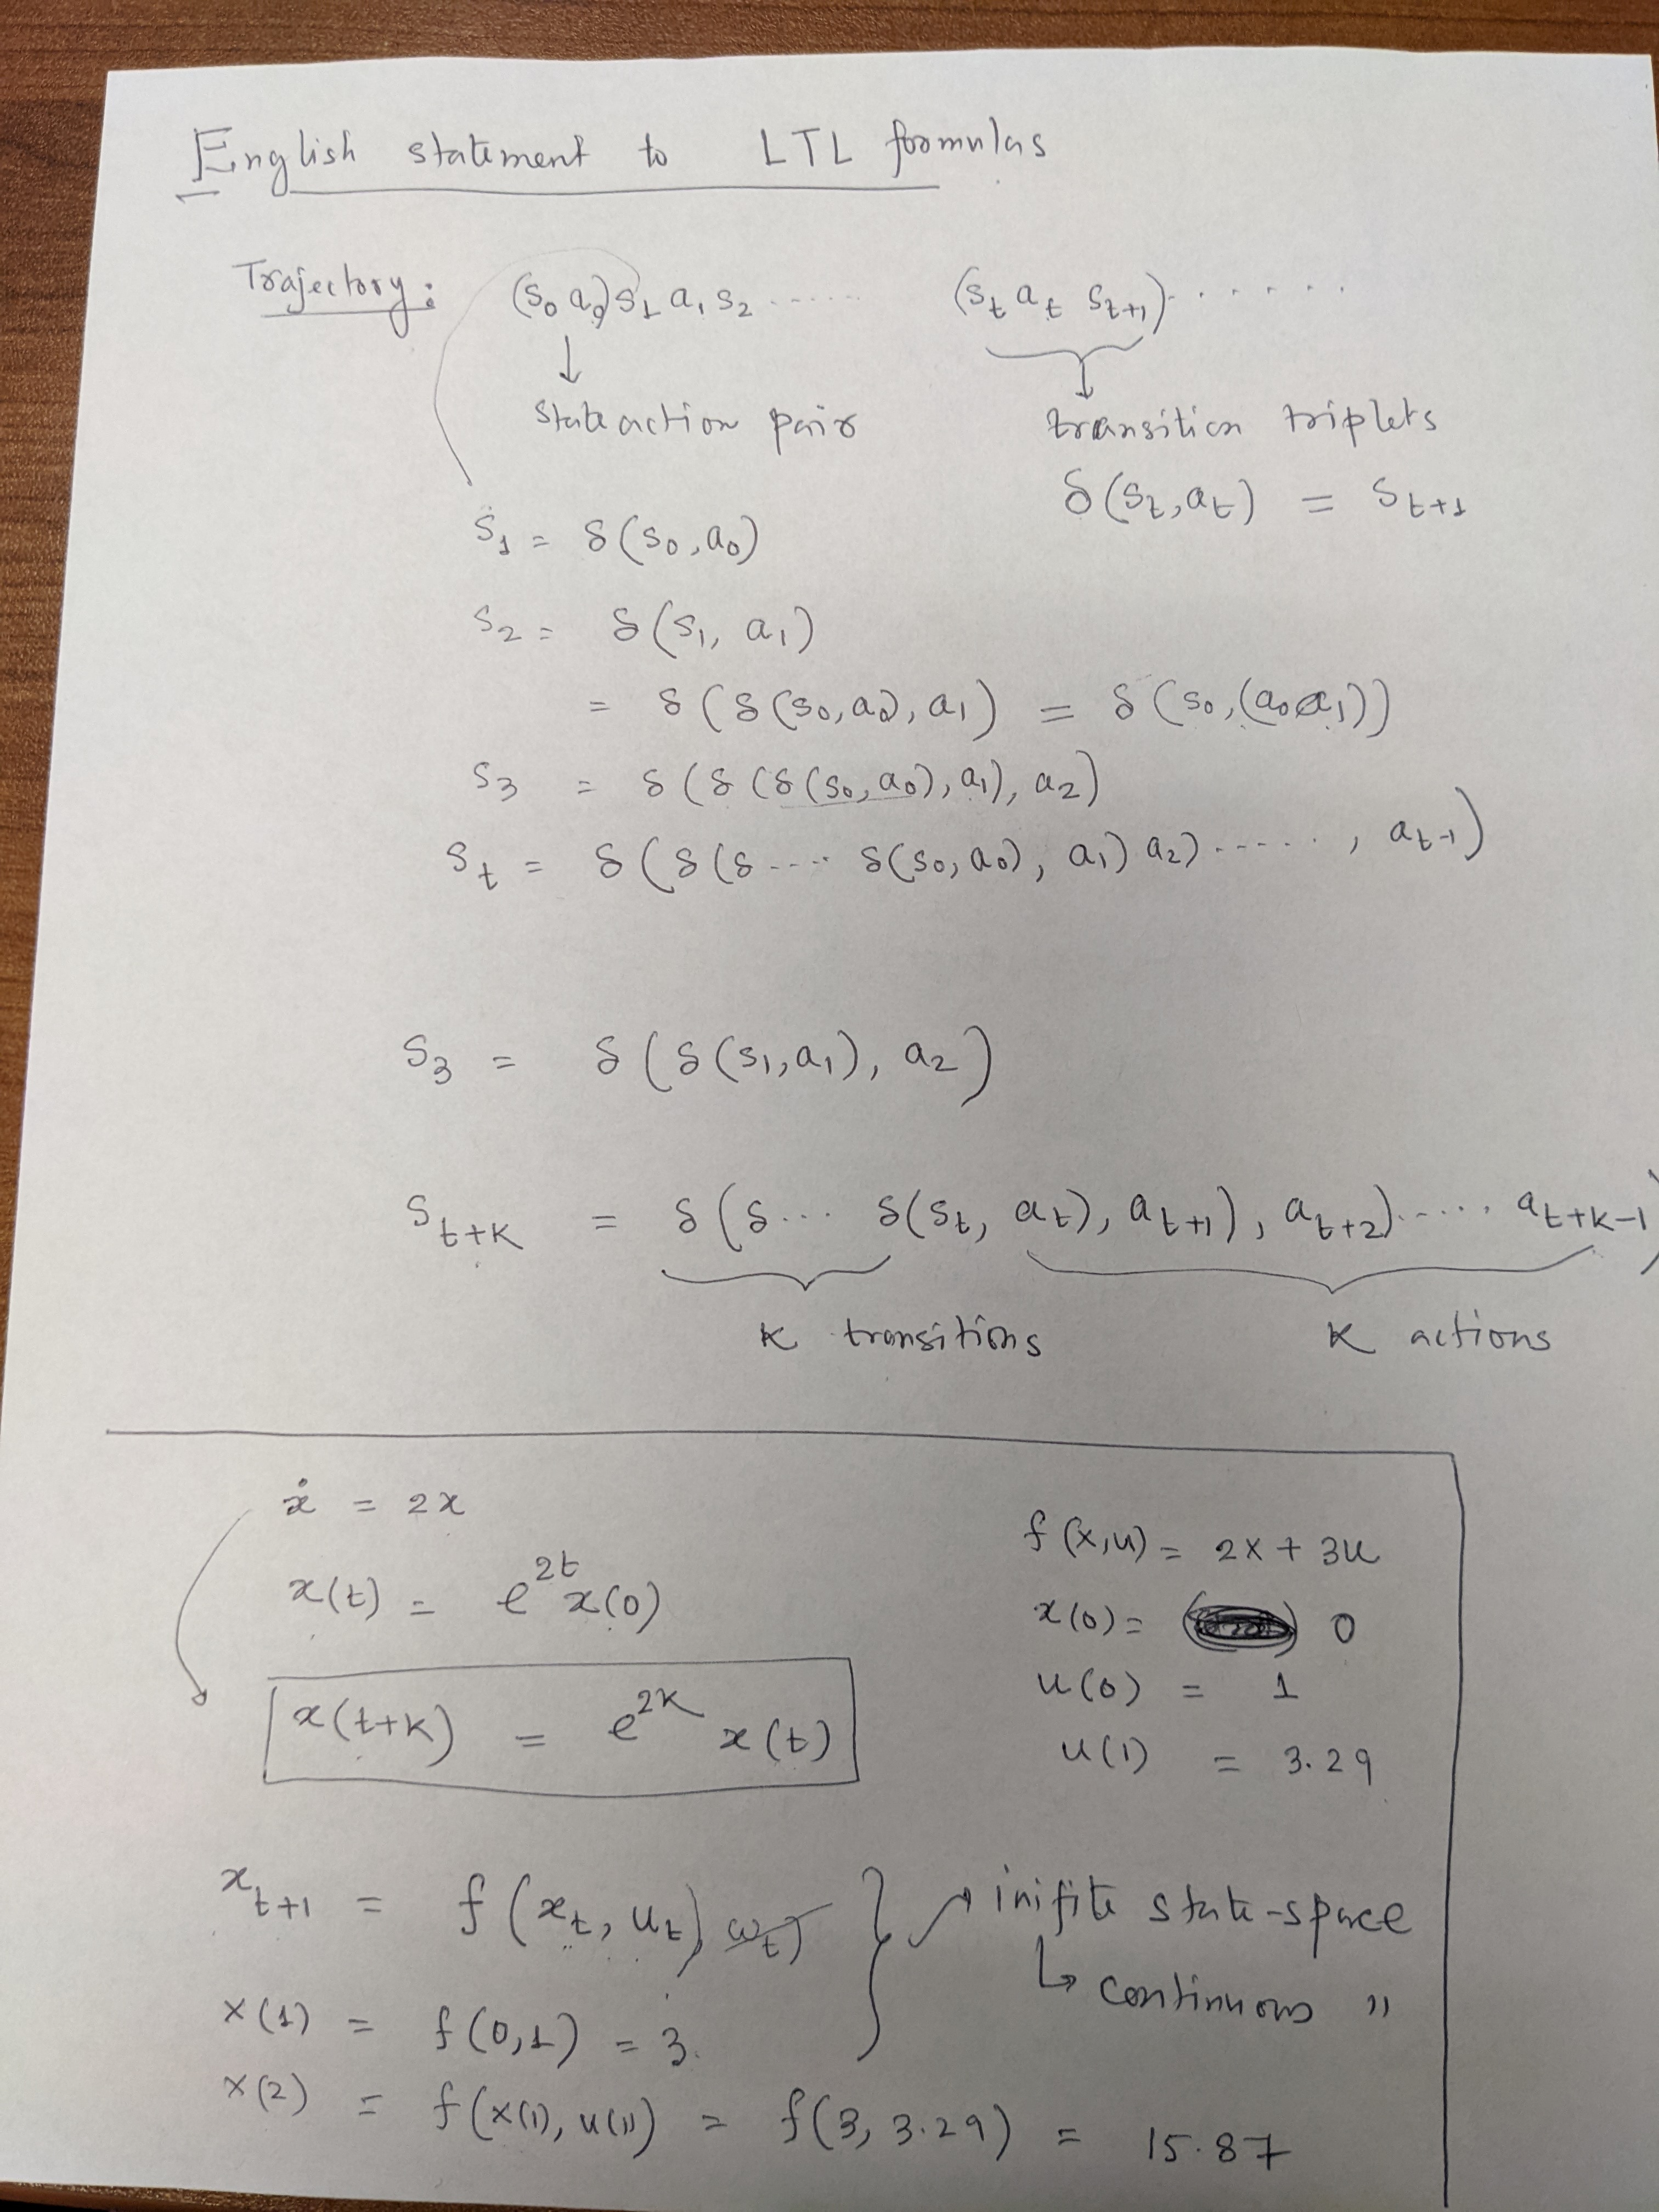 English statement to LTL formulas
Trajectory: (s₀ a₀) s₁ a₁ s₂ ...... (s_t a_t s_{t+1}) ......
↓ ↓
state action pair transition triplets
δ(s_t, a_t) = s_{t+1}
s₁ = δ(s₀, a₀)
s₂ = δ(s₁, a₁)
= δ(δ(s₀, a₀), a₁) = δ(s₀, (a₀a₁))
s₃ = δ(δ(δ(s₀, a₀), a₁), a₂)
s_t = δ(δ(δ .... δ(s₀, a₀), a₁) a₂) ......, a_{t-1})
s₃ = δ(δ(s₁, a₁), a₂)
s_{t+k} = δ(δ... δ(s_t, a_t), a_{t+1}), a_{t+2}) ..... a_{t+k-1})
k transitions k actions
ẋ = 2x
x(t) = e^{2t} x(0)
x(t+k) = e^{2k} x(t)
f(x,u) = 2x + 3u
x(0) = 0
u(0) = 1
u(1) = 3.29
x_{t+1} = f(x_t, u_t) w_t)
inifite state-space
↳ continuous "
x(1) = f(0,1) = 3.
x(2) = f(x(1), u(1)) = f(3, 3.29) = 15.87